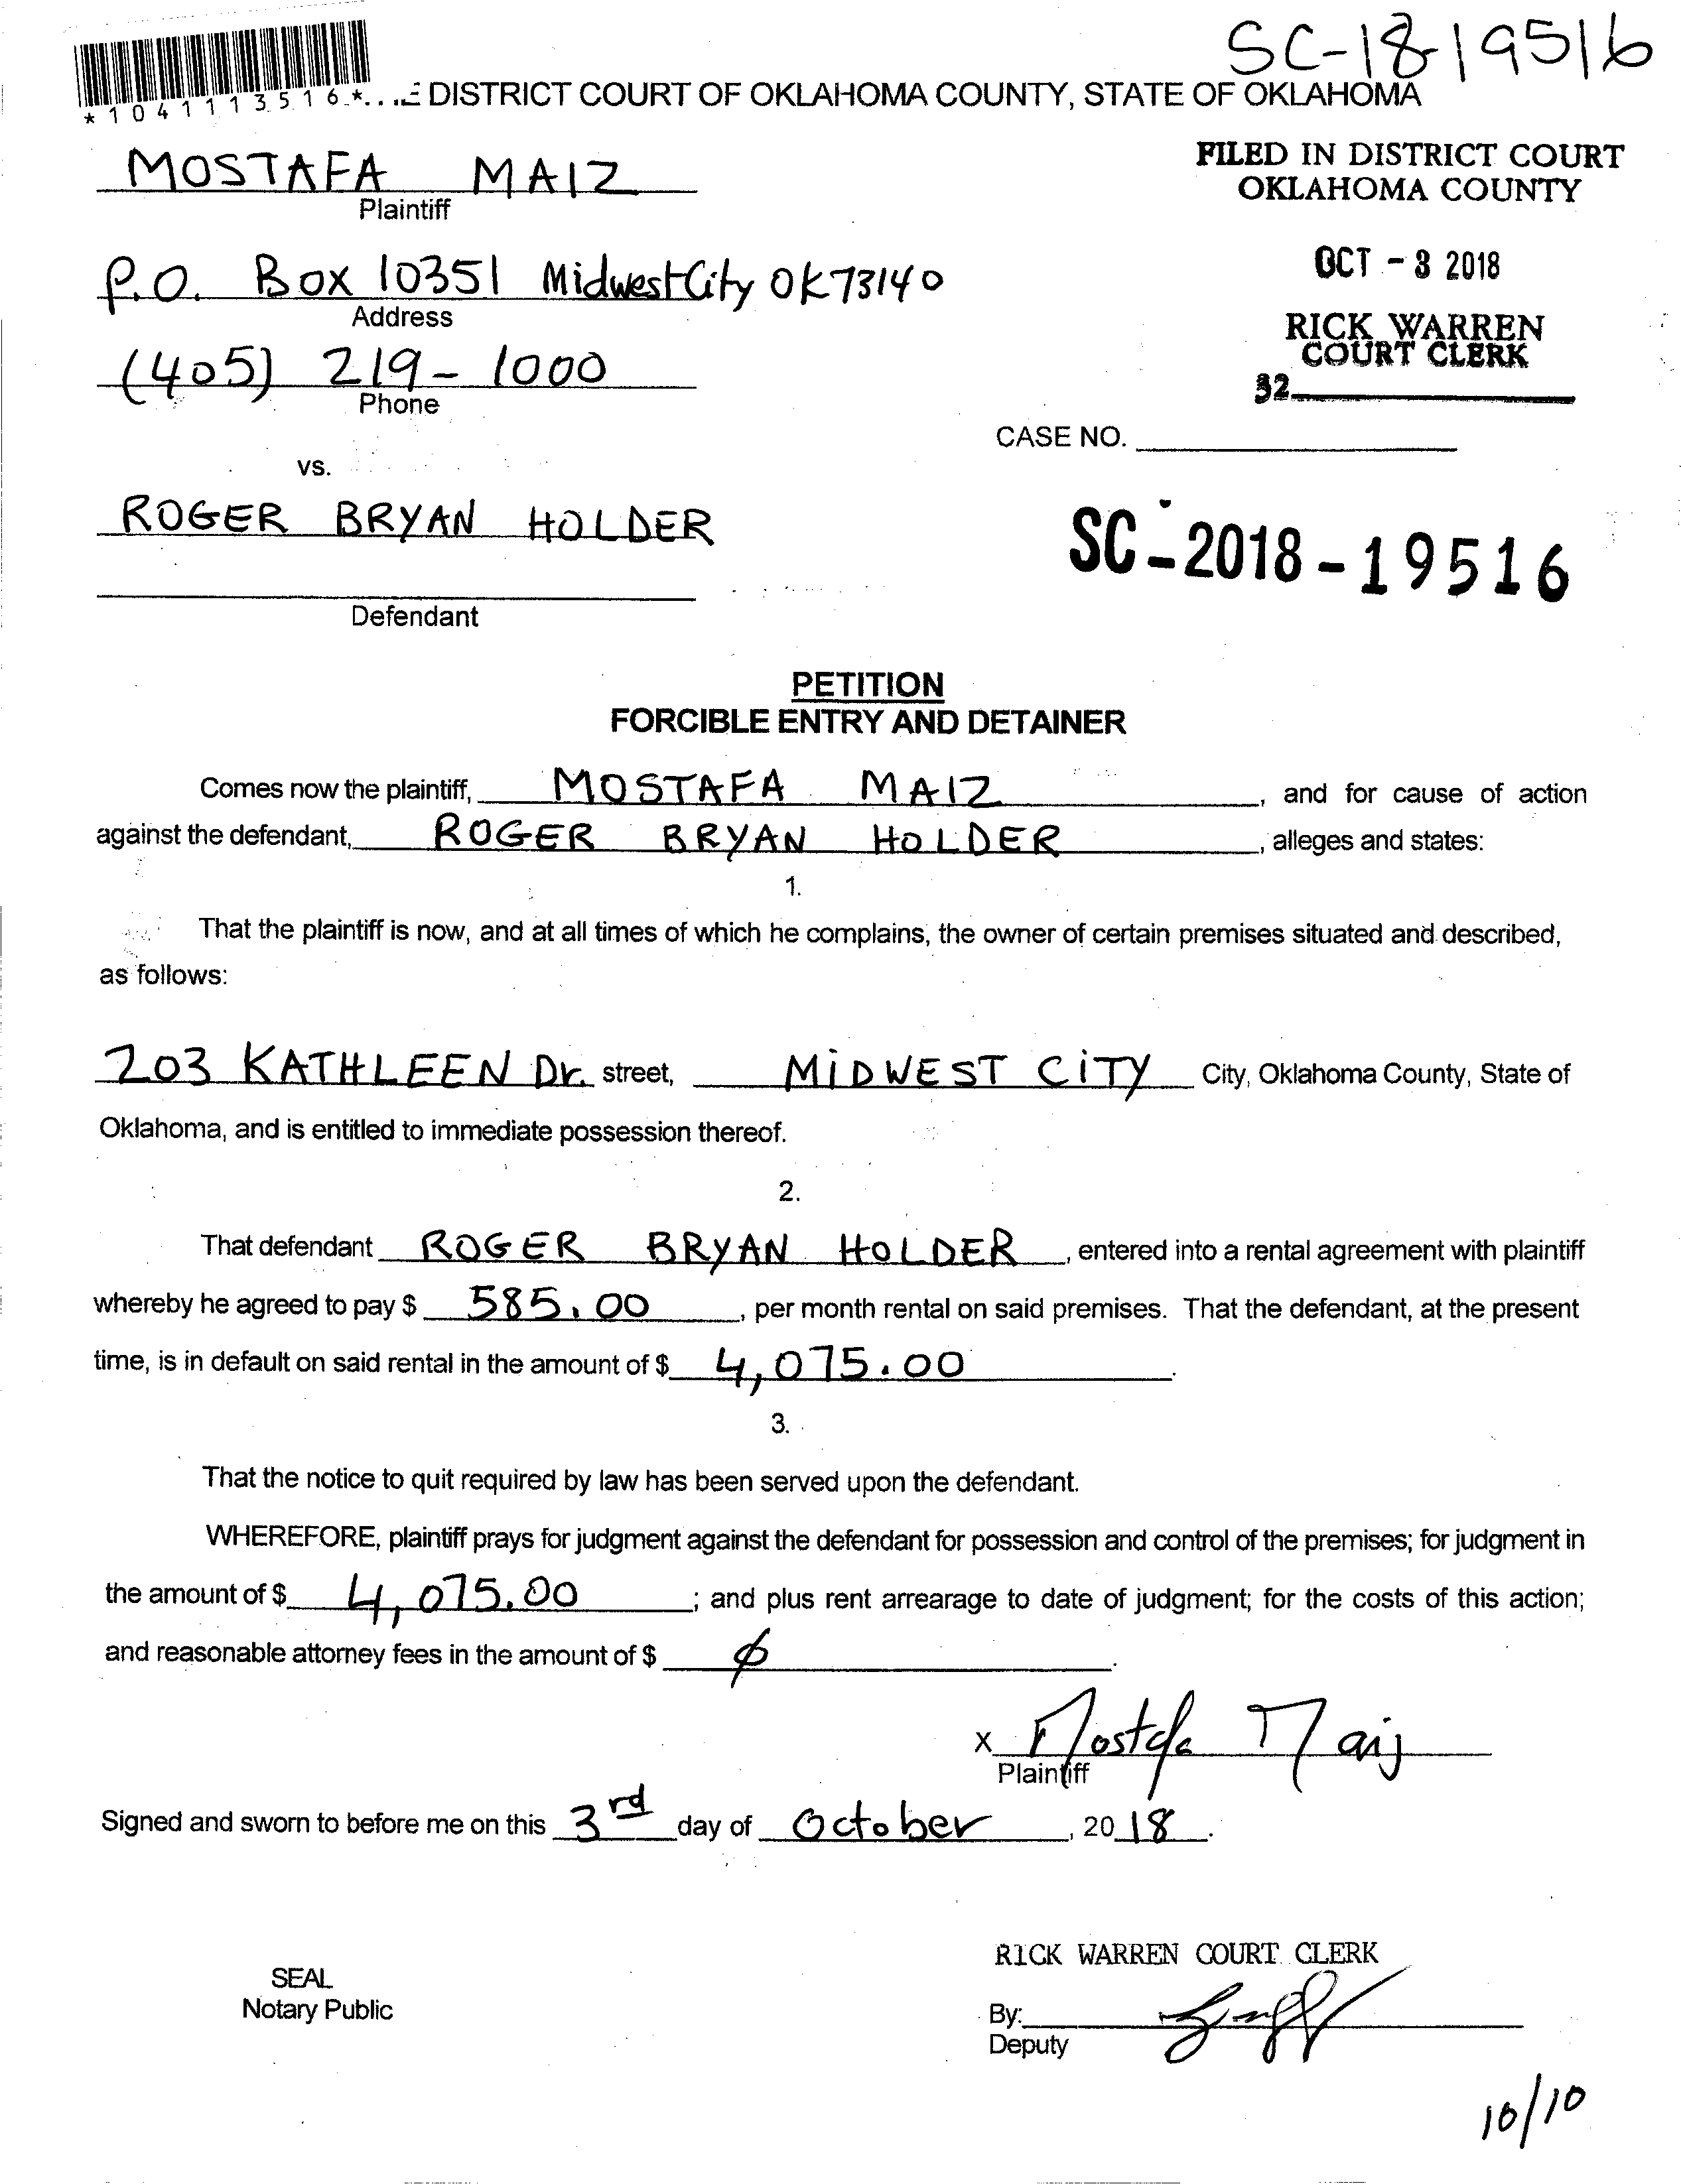 SC-18-19516
*1041113516*
DISTRICT COURT OF OKLAHOMA COUNTY, STATE OF OKLAHOMA
MOSTAFA MAIZ
Plaintiff
FILED IN DISTRICT COURT
OKLAHOMA COUNTY
P.O. Box 10351 Midwest City OK 73140
Address
OCT - 3 2018
RICK WARREN
COURT CLERK
(405) 219-1000
Phone
32
CASE NO.
vs.
ROGER BRYAN HOLDER
SC-2018-19516
Defendant
PETITION
FORCIBLE ENTRY AND DETAINER
Comes now the plaintiff, MOSTAFA MAIZ, and for cause of action
against the defendant, ROGER BRYAN HOLDER, alleges and states:
1.
That the plaintiff is now, and at all times of which he complains, the owner of certain premises situated and described,
as follows:
203 KATHLEEN Dr. street, MiDWEST CiTY City, Oklahoma County, State of
Oklahoma, and is entitled to immediate possession thereof.
2.
That defendant ROGER BRYAN HOLDER, entered into a rental agreement with plaintiff
whereby he agreed to pay $ 585.00, per month rental on said premises. That the defendant, at the present
time, is in default on said rental in the amount of $ 4,075.00.
3.
That the notice to quit required by law has been served upon the defendant.
WHEREFORE, plaintiff prays for judgment against the defendant for possession and control of the premises; for judgment in
the amount of $ 4,075.00; and plus rent arrearage to date of judgment; for the costs of this action;
and reasonable attorney fees in the amount of $ ∅.
x Mostafa Maiz
Plaintiff
Signed and sworn to before me on this 3rd day of October, 2018.
RICK WARREN COURT CLERK
SEAL
Notary Public
By:
Deputy
10/10